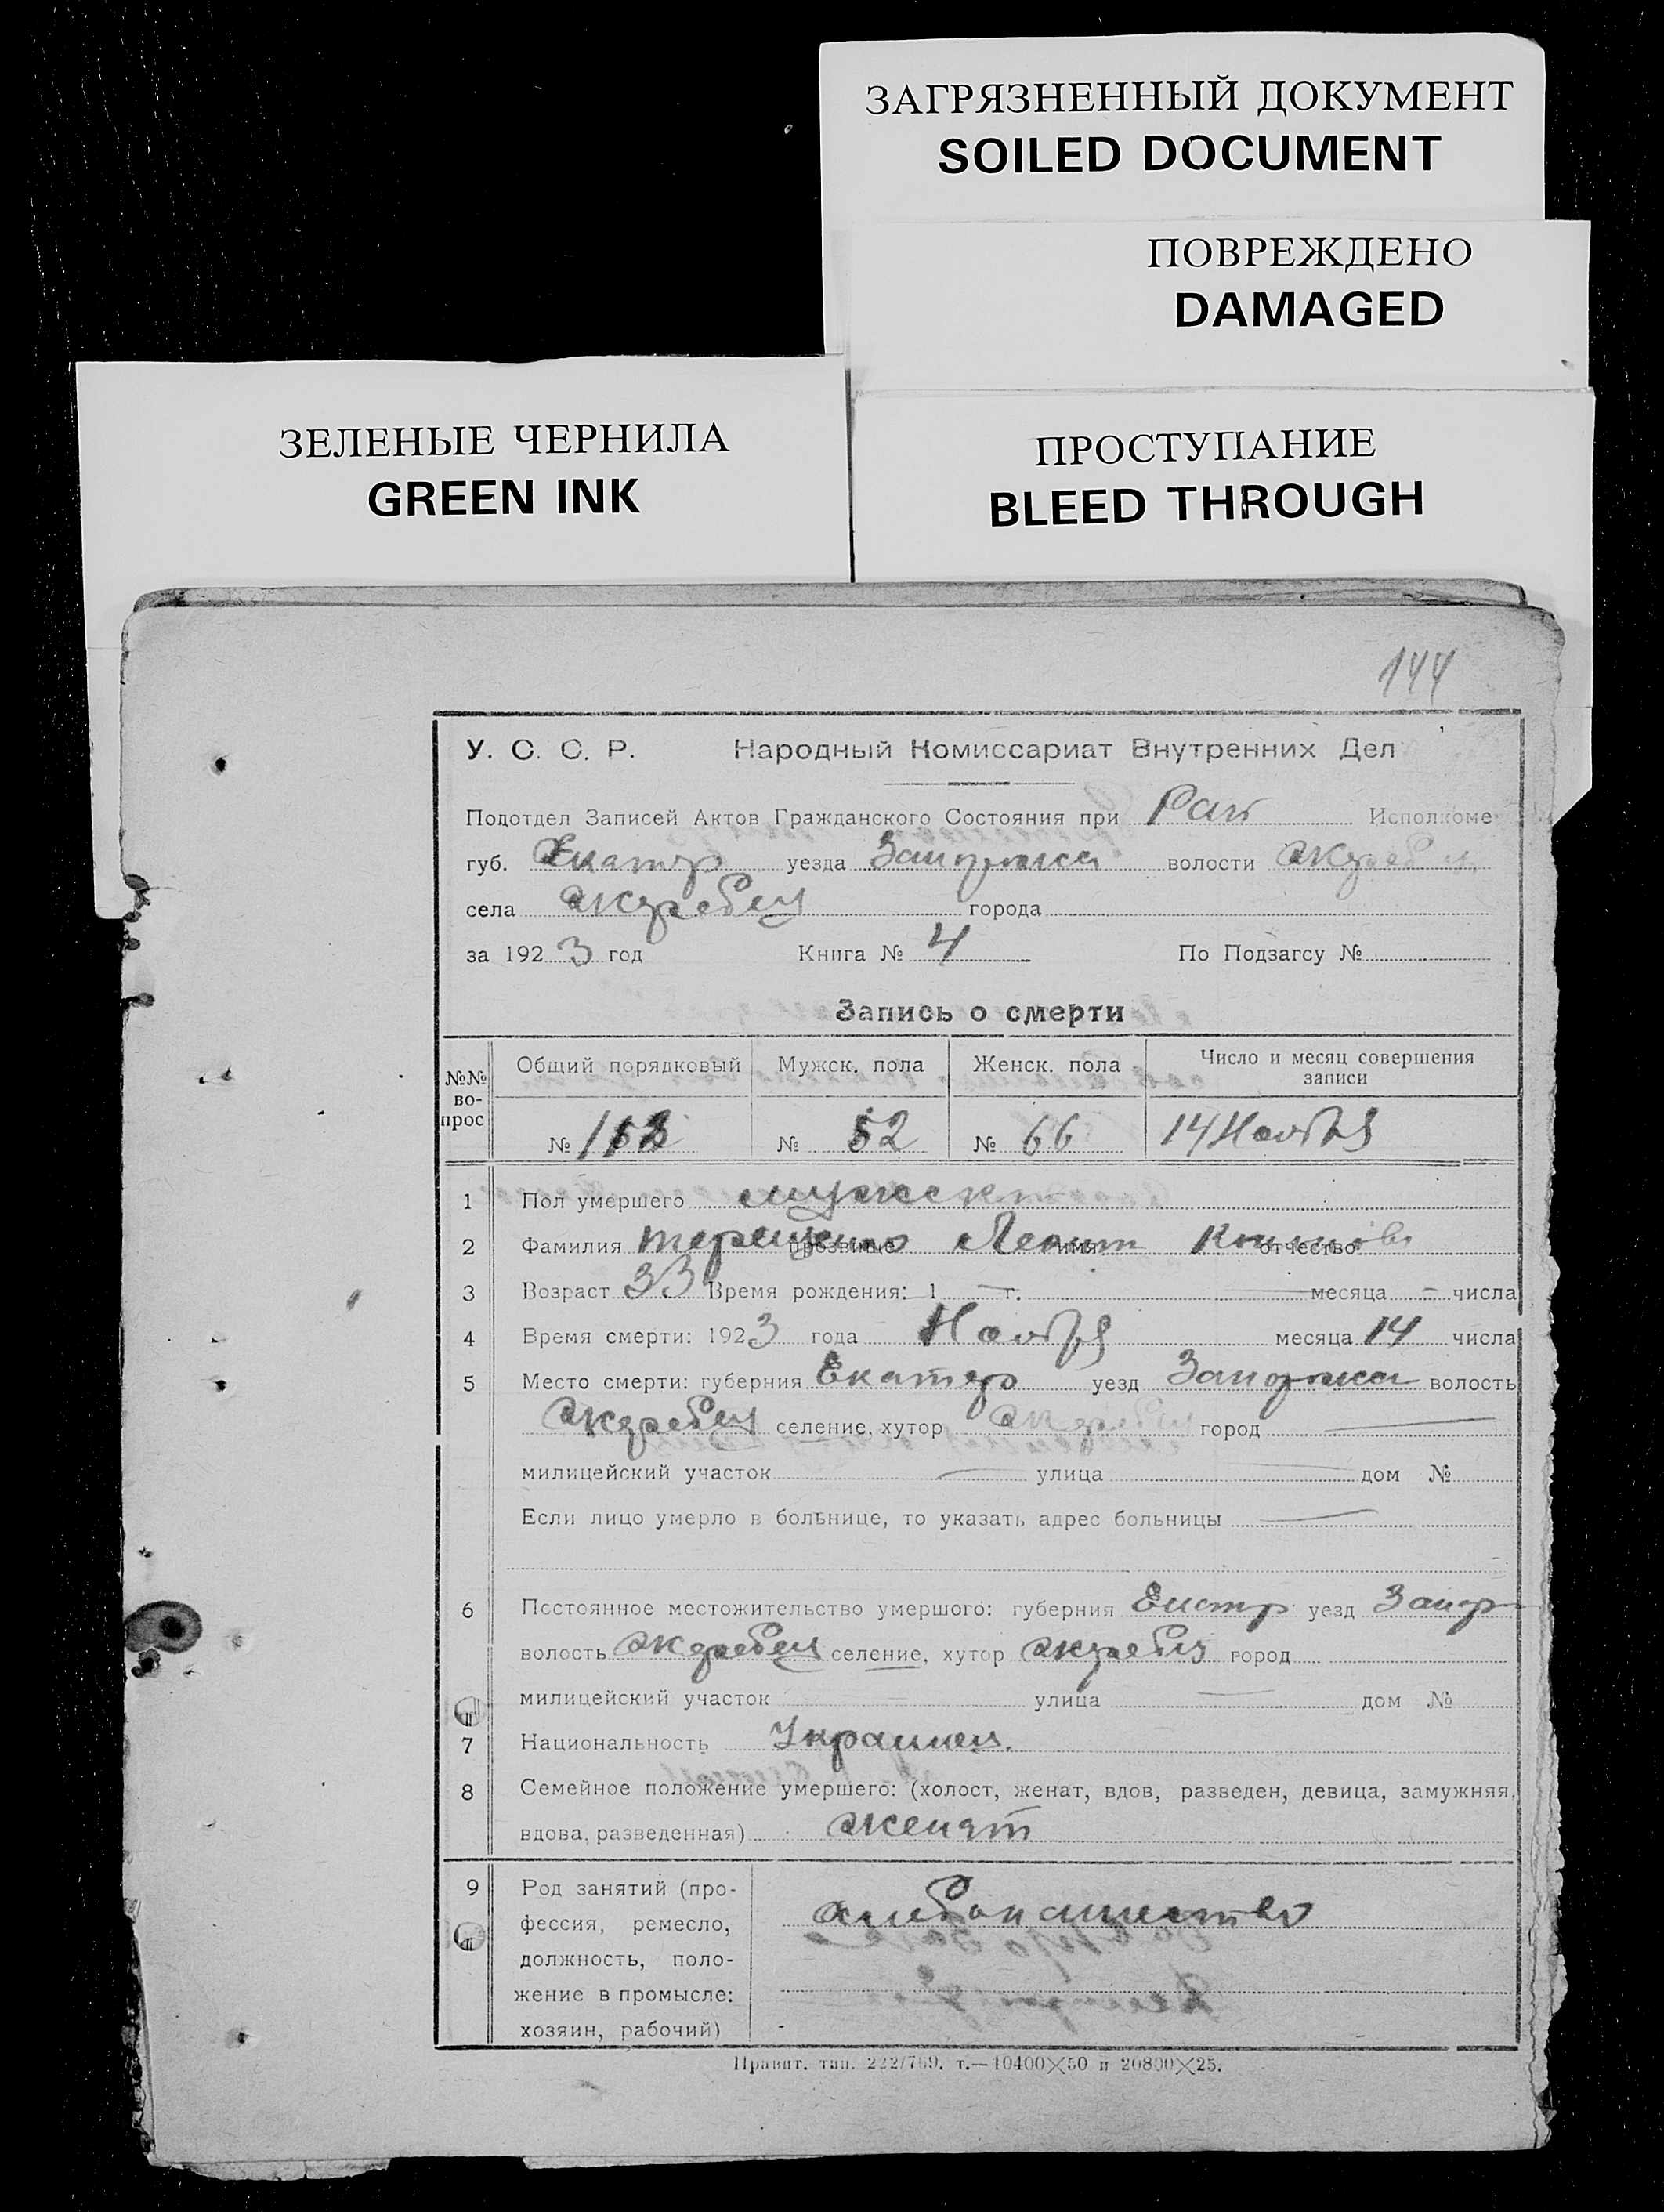 ЗАГРЯЗНЕННЫЙ ДОКУМЕНТ
SOILED DOCUMENT
ПОВРЕЖДЕНО
DAMAGED
ЗЕЛЕНЫЕ ЧЕРНИЛА
GREEN INK
ПРОСТУПАНИЕ
BLEED THROUGH
144
У. С. С. Р. Народный Комиссариат Внутренних Дел
Подотдел Записей Актов Гражданского Состояния при Рай Исполкоме
губ. Екатер уезда Запорожск волости Жеребец
села Жеребец города
за 1923 год Книга № 4 По Подзагсу №
Запись о смерти
№№ во-прос Общий порядковый Мужск. пола Женск. пола Число и месяц совершения записи
№ № 52 № 66 14 Ноября
1 Пол умершего мужск
2 Фамилия Терещенко прозвище имя отчество
3 Возраст 33 Время рождения: 1 — г. — месяца — числа
4 Время смерти: 1923 года Ноября месяца 14 числа
5 Место смерти: губерния Екатер уезд Запорожск волость
Жеребец селение, хутор Жеребец город —
милицейский участок — улица — дом №
Если лицо умерло в больнице, то указать адрес больницы —
6 Постоянное местожительство умершого: губерния уезд Запор
волость Жеребец селение, хутор Жеребец город
милицейский участок улица — дом №
7 Национальность Украинец.
8 Семейное положение умершего: (холост, женат, вдов, разведен, девица, замужняя,
вдова, разведенная) женат
9 Род занятий (про-
фессия, ремесло, хлебопашество
должность, поло-
жение в промысле:
хозяин, рабочий) -
Правит. тип. 222/769. т.—10400×50 и 20800×25.